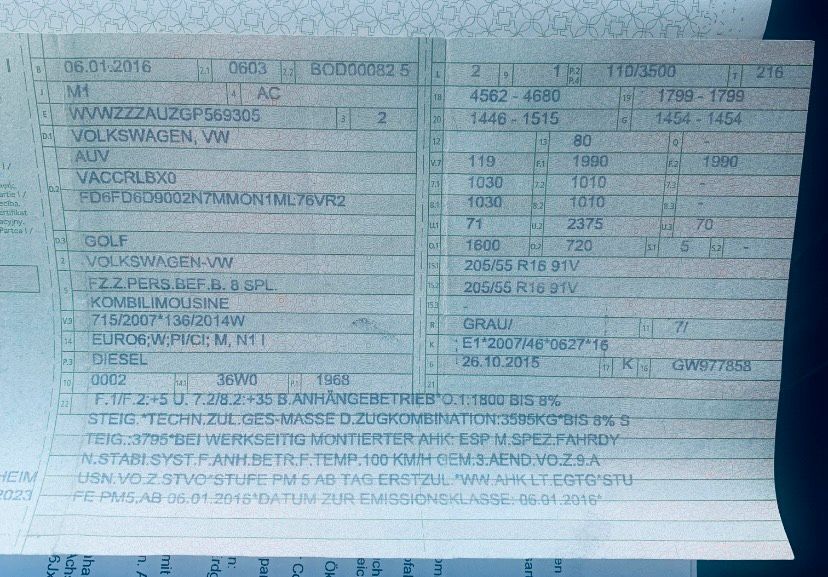 B 06.01.2016 2.1 0603 2.2 BOD00082 5
J M1 4 AC
E WVWZZZAUZGP569305 3 2
D.1 VOLKSWAGEN, VW
AUV
D.2 VACCRLBX0
FD6FD6D9002N7MMON1ML76VR2
D.3 GOLF
2 VOLKSWAGEN-VW
5 FZ.Z.PERS.BEF.B. 8 SPL.
KOMBILIMOUSINE
V.9 715/2007*136/2014W
14 EURO6;W;PI/CI; M, N1 I
P.3 DIESEL
10 0002 14.1 36W0 P.1 1968
L 2 9 1 P.2 P.4 110/3500 T 216
18 4562 - 4680 19 1799 - 1799
20 1446 - 1515 G 1454 - 1454
12 - 13 80 Q -
V.7 119 F.1 1990 F.2 1990
7.1 1030 7.2 1010 7.3 -
8.1 1030 8.2 1010 8.3 -
U.1 71 U.2 2375 U.3 70
O.1 1600 O.2 720 S.1 5 S.2 -
15.1 205/55 R16 91V
15.2 205/55 R16 91V
15.3
R GRAU/ 11 7/
K E1*2007/46*0627*16
6 26.10.2015 17 K 16 GW977858
21
22 F.1/F.2:+5 U. 7.2/8.2:+35 B.ANHÄNGEBETRIEB*O.1:1800 BIS 8%
STEIG.*TECHN.ZUL.GES-MASSE D.ZUGKOMBINATION:3595KG*BIS 8% S
TEIG.:3795*BEI WERKSEITIG MONTIERTER AHK: ESP M.SPEZ.FAHRDY
N.STABI.SYST.F.ANH.BETR.F.TEMP.100 KM/H GEM.3.AEND.VO.Z.9.A
USN.VO.Z.STVO*STUFE PM 5 AB TAG ERSTZUL.*WW.AHK LT.EGTG*STU
FE PM5,AB 06.01.2016*DATUM ZUR EMISSIONSKLASSE: 06.01.2016*
HEIM
2023